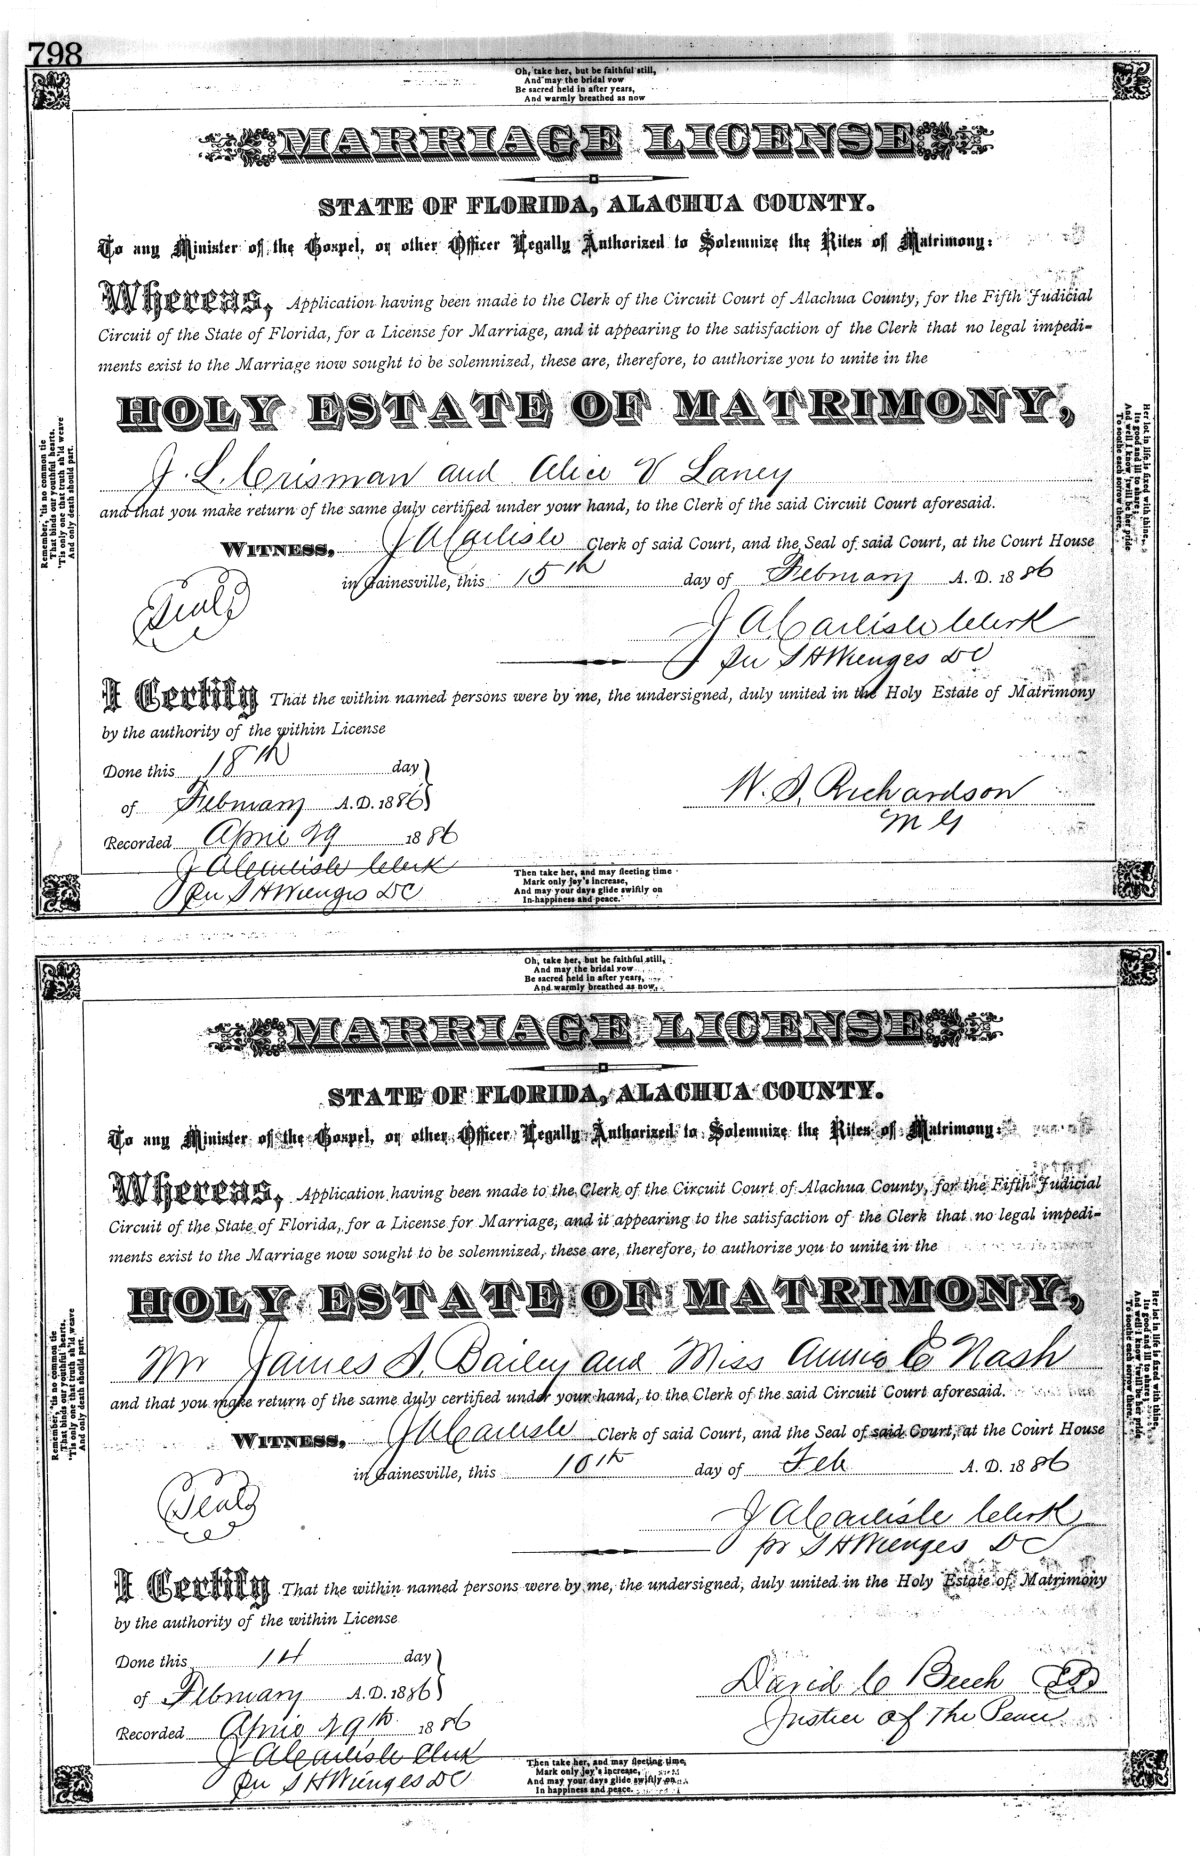 798
Oh, take her, but be faithful still,
And may the bridal vow
Be sacred held in after years,
And warmly breathed as now
MARRIAGE LICENSE
STATE OF FLORIDA, ALACHUA COUNTY.
To any Minister of the Gospel, or other Officer Legally Authorized to Solemnize the Rites of Matrimony:
Whereas, Application having been made to the Clerk of the Circuit Court of Alachua County, for the Fifth Judicial
Circuit of the State of Florida, for a License for Marriage, and it appearing to the satisfaction of the Clerk that no legal impedi-
ments exist to the Marriage now sought to be solemnized, these are, therefore, to authorize you to unite in the
HOLY ESTATE OF MATRIMONY,
J. L. Crisman and Alice V Laney
and that you make return of the same duly certified under your hand, to the Clerk of the said Circuit Court aforesaid.
WITNESS, J A Carlisle Clerk of said Court, and the Seal of said Court, at the Court House
in Gainesville, this 15th day of February A. D. 1886
Seal
J A Carlisle Clerk
per S H Wienges DC
I Certify That the within named persons were by me, the undersigned, duly united in the Holy Estate of Matrimony
by the authority of the within License
Done this 18th day
of February A. D. 1886
W. S. Richardson
M G
Recorded April 29 1886
J A Carlisle Clerk
per S H Wienges DC
Then take her, and may fleeting time
Mark only joy's increase,
And may your days glide swiftly on
In happiness and peace.
Remember, 'tis no common tie
That binds our youthful hearts.
'Tis only one that truth sh'ld weave
And only death should part.
Her lot in life is fixed with thine,
Its good and ill to share;
And well I know 'twill be her pride
To soothe each sorrow there.
Oh, take her, but be faithful still,
And may the bridal vow
Be sacred held in after years,
And warmly breathed as now,
MARRIAGE LICENSE
STATE OF FLORIDA, ALACHUA COUNTY.
To any Minister of the Gospel, or other Officer Legally Authorized to Solemnize the Rites of Matrimony:
Whereas, Application having been made to the Clerk of the Circuit Court of Alachua County, for the Fifth Judicial
Circuit of the State of Florida, for a License for Marriage, and it appearing to the satisfaction of the Clerk that no legal impedi-
ments exist to the Marriage now sought to be solemnized, these are, therefore, to authorize you to unite in the
HOLY ESTATE OF MATRIMONY,
Mr James S. Bailey and Miss Annie E Nash
and that you make return of the same duly certified under your hand, to the Clerk of the said Circuit Court aforesaid.
WITNESS, J A Carlisle Clerk of said Court, and the Seal of said Court, at the Court House
in Gainesville, this 10th day of Feb A. D. 1886
Seal
J A Carlisle Clerk
pr S H Wienges DC
I Certify That the within named persons were by me, the undersigned, duly united in the Holy Estate of Matrimony
by the authority of the within License
Done this 14 day
of February A. D. 1886
David C Beech
Justice of The Peace
Recorded April 29th 1886
J A Carlisle Clerk
per S H Wienges DC
Then take her, and may fleeting time,
Mark only joy's increase,
And may your days glide swiftly on
In happiness and peace.
Remember, 'tis no common tie
That binds our youthful hearts.
'Tis only one that truth sh'ld weave
And only death should part.
Her lot in life is fixed with thine,
Its good and ill to share;
And well I know 'twill be her pride
To soothe each sorrow there.